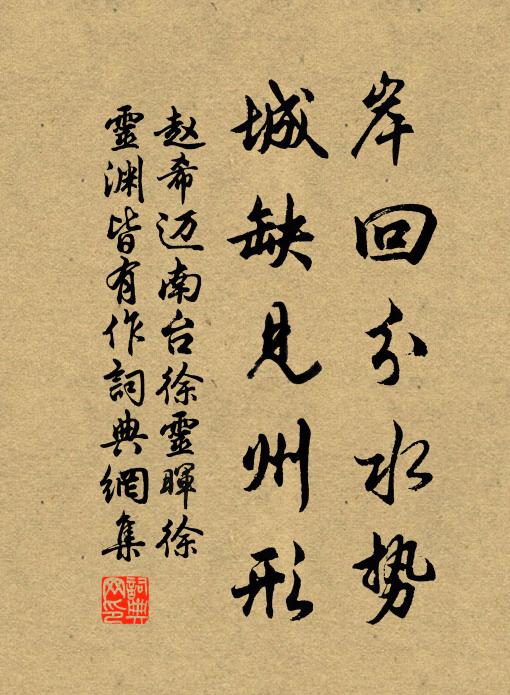 岸回分水势
城缺见州形
赵希迈南台徐靈暉徐
靈渊皆有作詞典網集
詞典网印